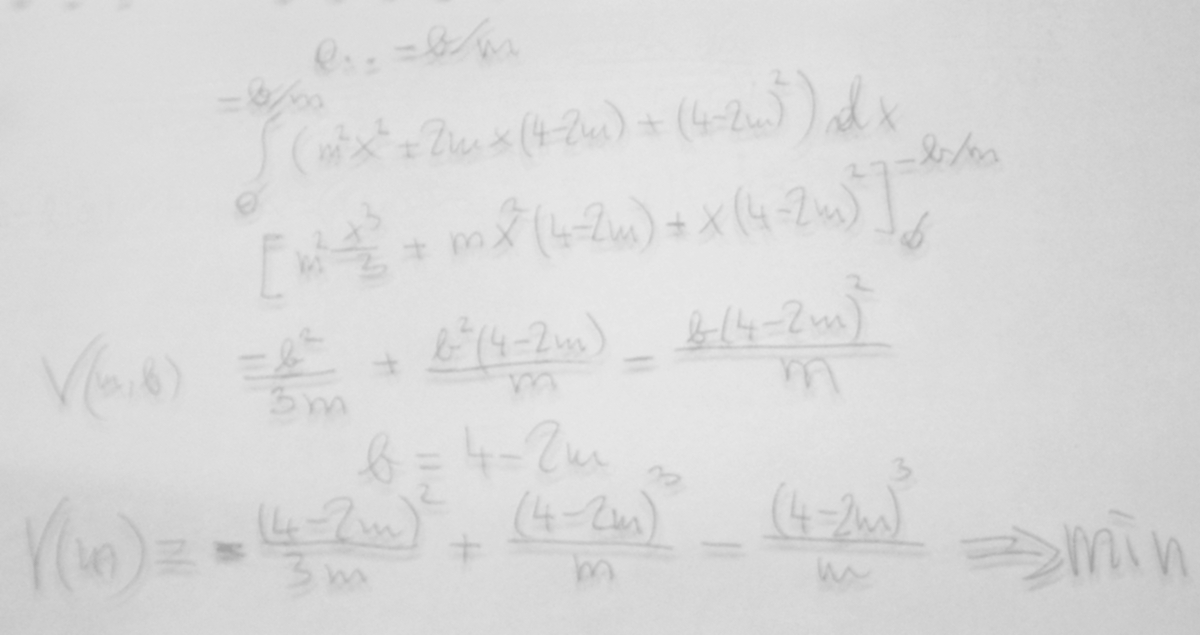 = b/m
= b/m
∫ (m²x² + 2mx(4-2m) + (4-2m)²) dx
[m² x³/3 + mx²(4-2m) + x(4-2m)²] = b/m
V(m,b) = b²/3m + b²(4-2m)/m = b(4-2m)²/m
b = 4-2m
V(m) = - (4-2m)²/3m + (4-2m)³/m - (4-2m)³/m ⇒ min